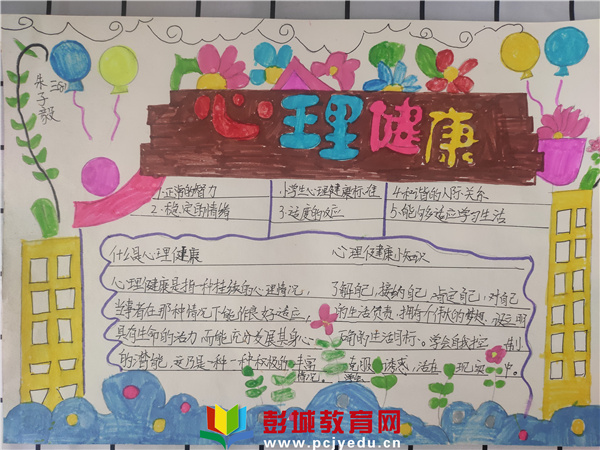 心理健康
朱子毅
1.正常的智力
小学生心理健康标准
4.和谐的人际关系
2.稳定的情绪
3.适度的反应
5.能够适应学习生活
什么是心理健康
心理健康是指一种持续的心理情况，
当事者在那种情况下能作良好适应，
具有生命的活力而能充分发展其身心
的潜能，这乃是一种一种积极的丰富
情况。
心理健康小知识
了解自己，接纳自己，肯定自己，对自己
的生活负责，拥有不伟大的梦想，设定明
确的生活目标。学会自我控制
克服诱惑，活在现实中。
彭城教育网
www.pcjyedu.cn